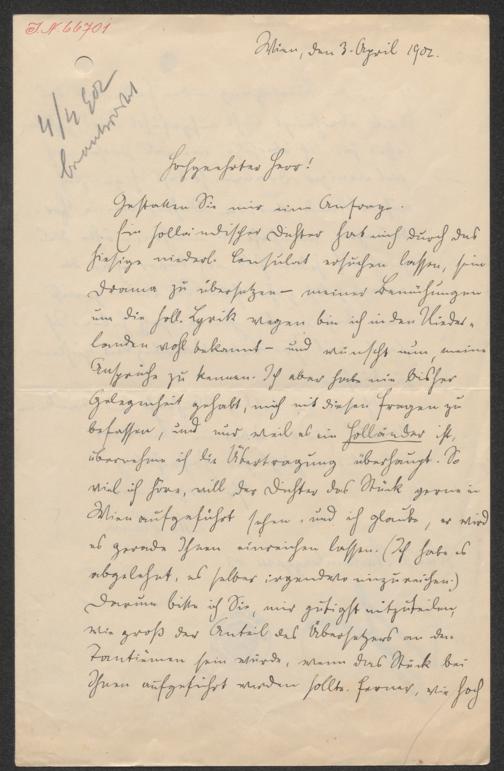 J.N. 66701
Wien, den 3. April 1902.
4/4 902
beantwortet
Hochgeehrter Herr!
Gestatten Sie mir eine Anfrage.
Ein holländischer Dichter hat mich durch das
hiesige niederl. Consulat ersuchen lassen, sein
Drama zu übersetzen – meiner Bemühungen
um die holl. Lyrik wegen bin ich in den Nieder-
landen wohl bekannt – und wünscht nun, meine
Ansprüche zu kennen. Ich aber habe nie bisher
Gelegenheit gehabt, mich mit diesen Fragen zu
befassen, und nur weil es ein Holländer ist,
übernehme ich die Übertragung überhaupt. So
viel ich höre, will der Dichter das Stück gerne in
Wien aufgeführt sehen, und ich glaube, er wird
es gerade Ihnen einreichen lassen. (Ich habe es
abgelehnt, es selber irgendwo einzureichen.)
Darum bitte ich Sie, mir gütigst mitzuteilen,
wie groß der Anteil des Übersetzers an den
Tantièmen sein würde, wenn das Stück bei
Ihnen aufgeführt werden sollte. Ferner, wie hoch